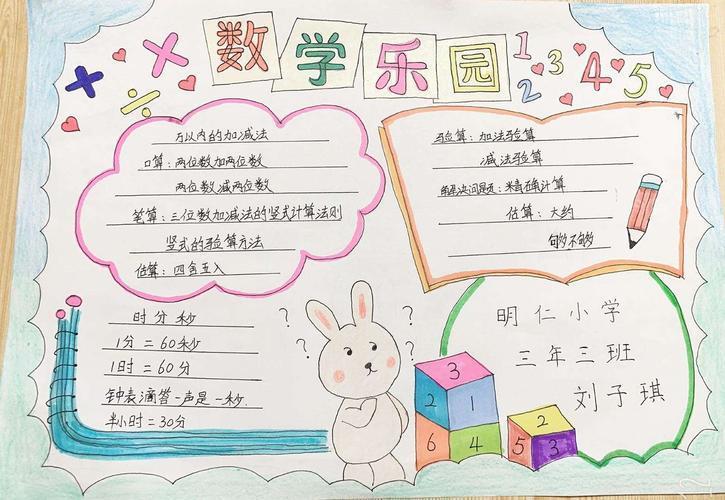 数学乐园
1 2 3 4 5
万以内的加减法
口算：两位数加两位数
两位数减两位数
笔算：三位数加减法的竖式计算法则
竖式的验算方法
估算：四舍五入
验算：加法验算
减法验算
解决问题：精确计算
估算：大约
够不够
时分秒
1分=60秒
1时=60分
钟表滴答一声是一秒.
半小时=30分
? ? ? ? ?
3
2 1
6 4
2
5 3
明仁小学
三年三班
刘子琪